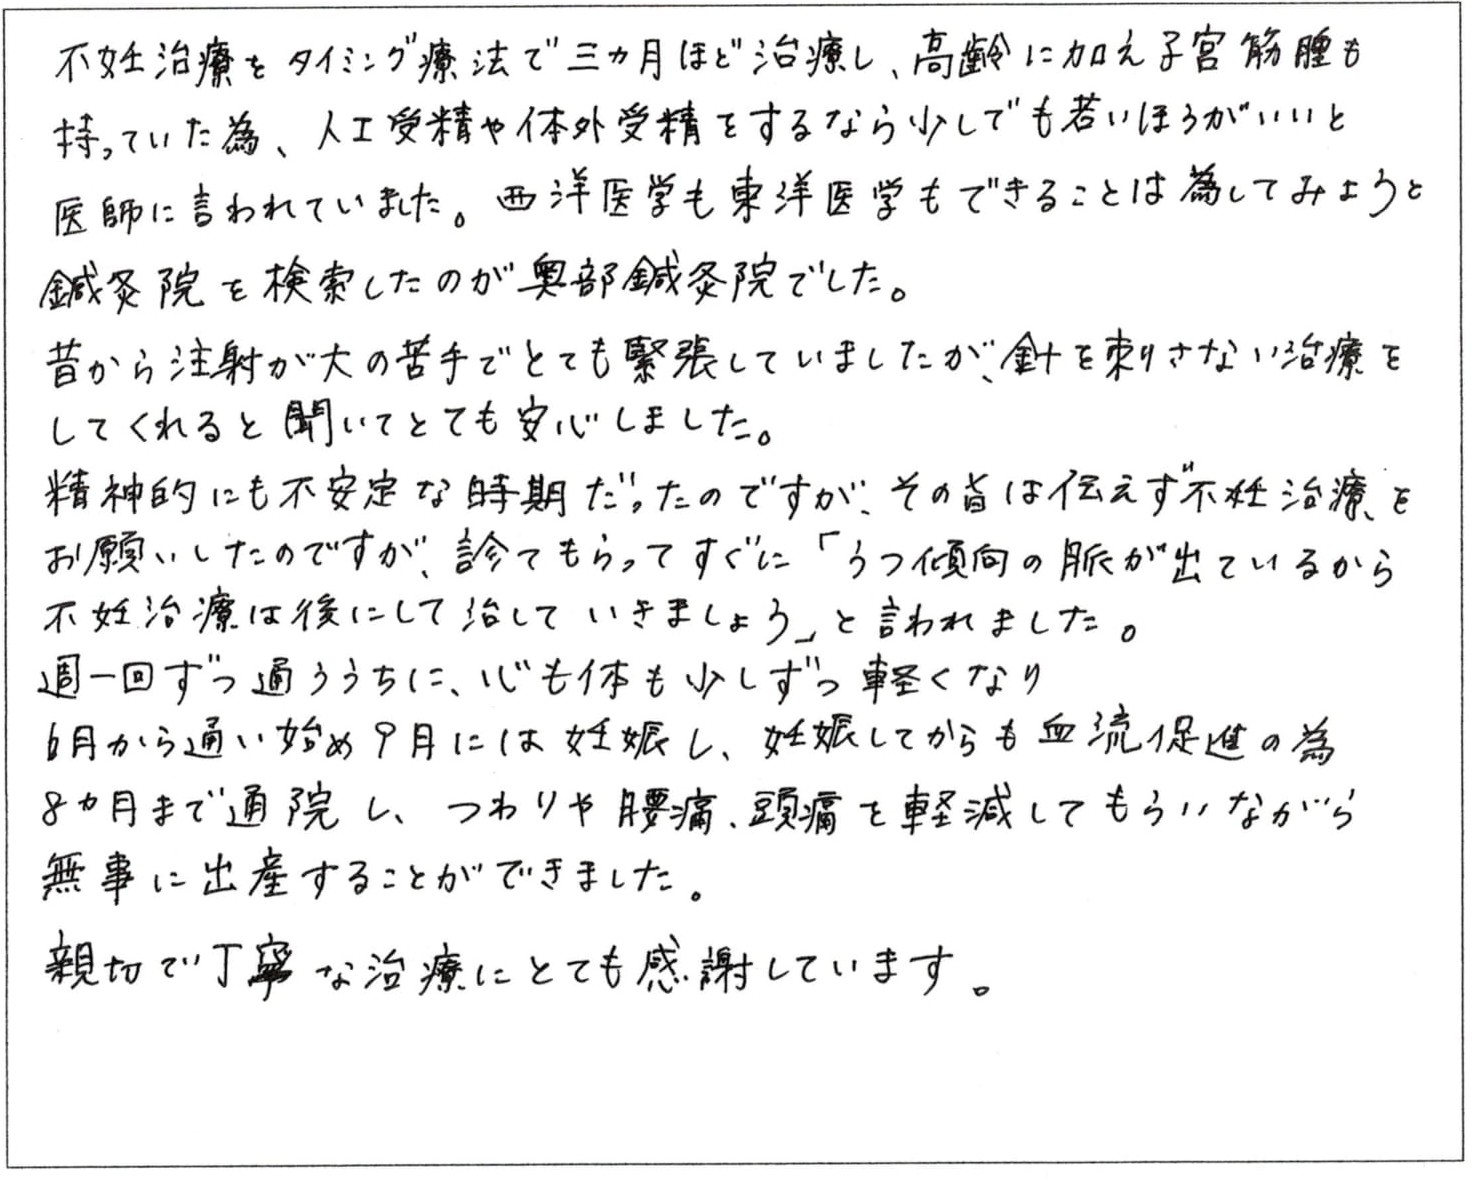 不妊治療をタイミング療法で三カ月ほど治療し、高齢に加え子宮筋腫も
持っていた為、人工受精や体外受精をするなら少しでも若いほうがいいと
医師に言われていました。西洋医学も東洋医学もできることは為してみようと
鍼灸院を検索したのが奥部鍼灸院でした。
昔から注射が大の苦手でとても緊張していましたが、針を刺さない治療を
してくれると聞いてとても安心しました。
精神的にも不安定な時期だったのですが、その旨は伝えず不妊治療を
お願いしたのですが、診てもらってすぐに「うつ傾向の脈が出ているから
不妊治療は後にして治していきましょう」と言われました。
週一回ずつ通ううちに、心も体も少しずつ軽くなり
6月から通い始め9月には妊娠し、妊娠してからも血流促進の為
8カ月まで通院し、つわりや腰痛、頭痛を軽減してもらいながら
無事に出産することができました。
親切で丁寧な治療にとても感謝しています。